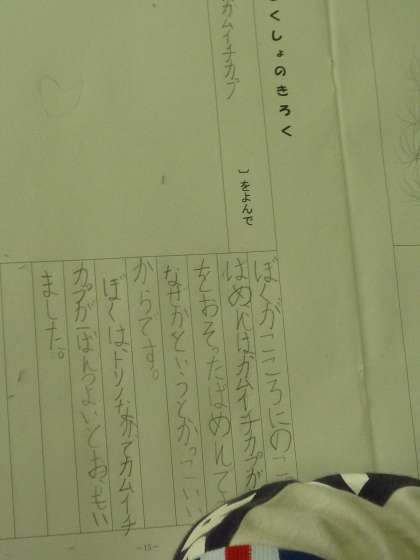 くしょのきろく
カムイチカプ
〕をよんで
ぼくがこころにのこ
ばめんはカムイチカプが
をおそったばめんで
なぜかというとかっこいい
からです。
ぼくは、トリのなかでカムイチ
カプが一ばんつよいとおもい
ました。
-15-